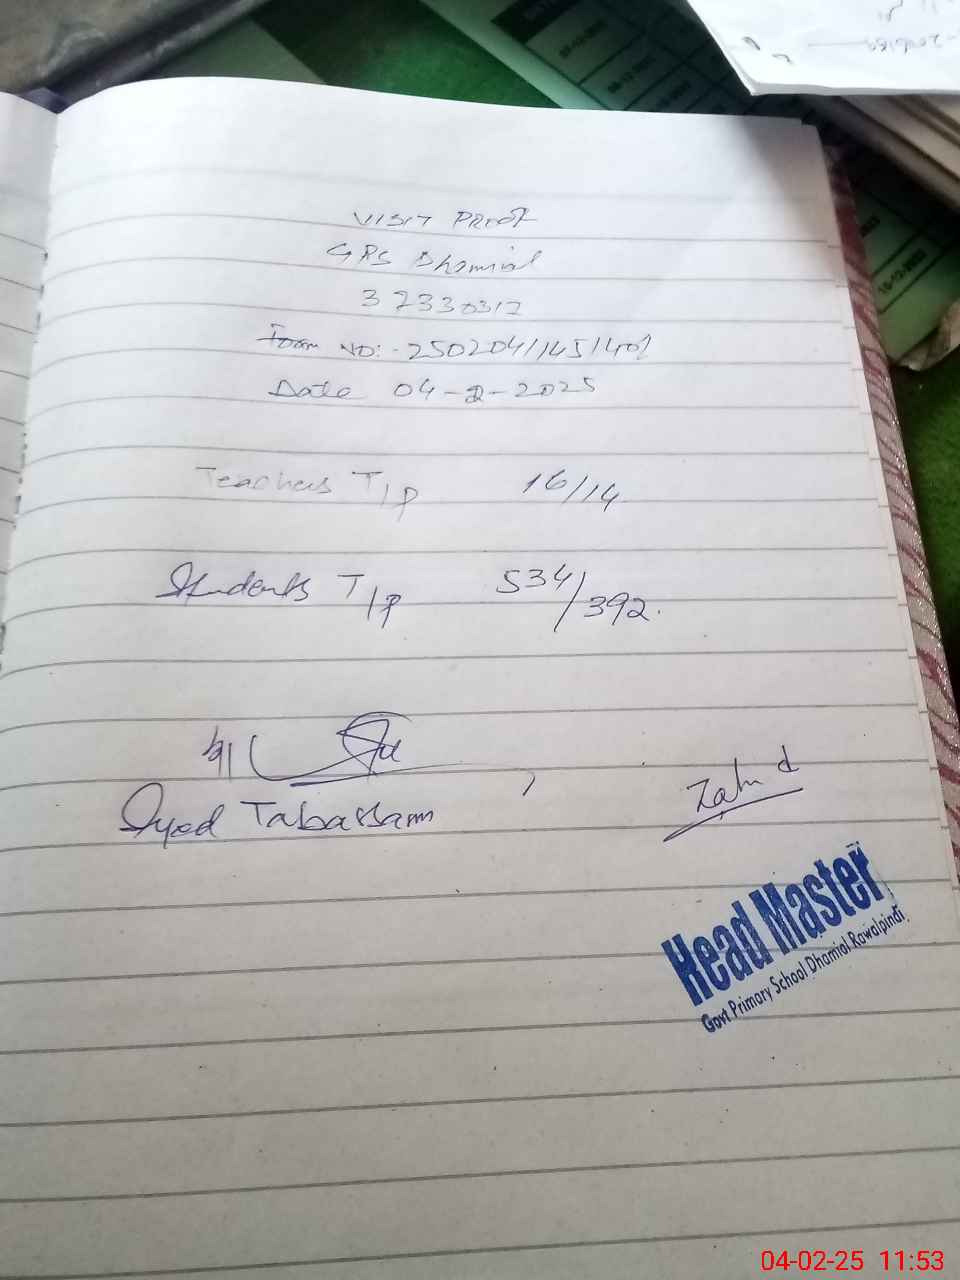 VISIT PROOF
GPS Dhamial
37330312
Form NO:- 25020411451401
Date 04-2-2025
Teachers T/P 16/14
Students T/P 534/392.
Syed Tabassam
Zahid
Head Master
Govt Primary School Dhamial Rawalpindi
04-02-25 11:53